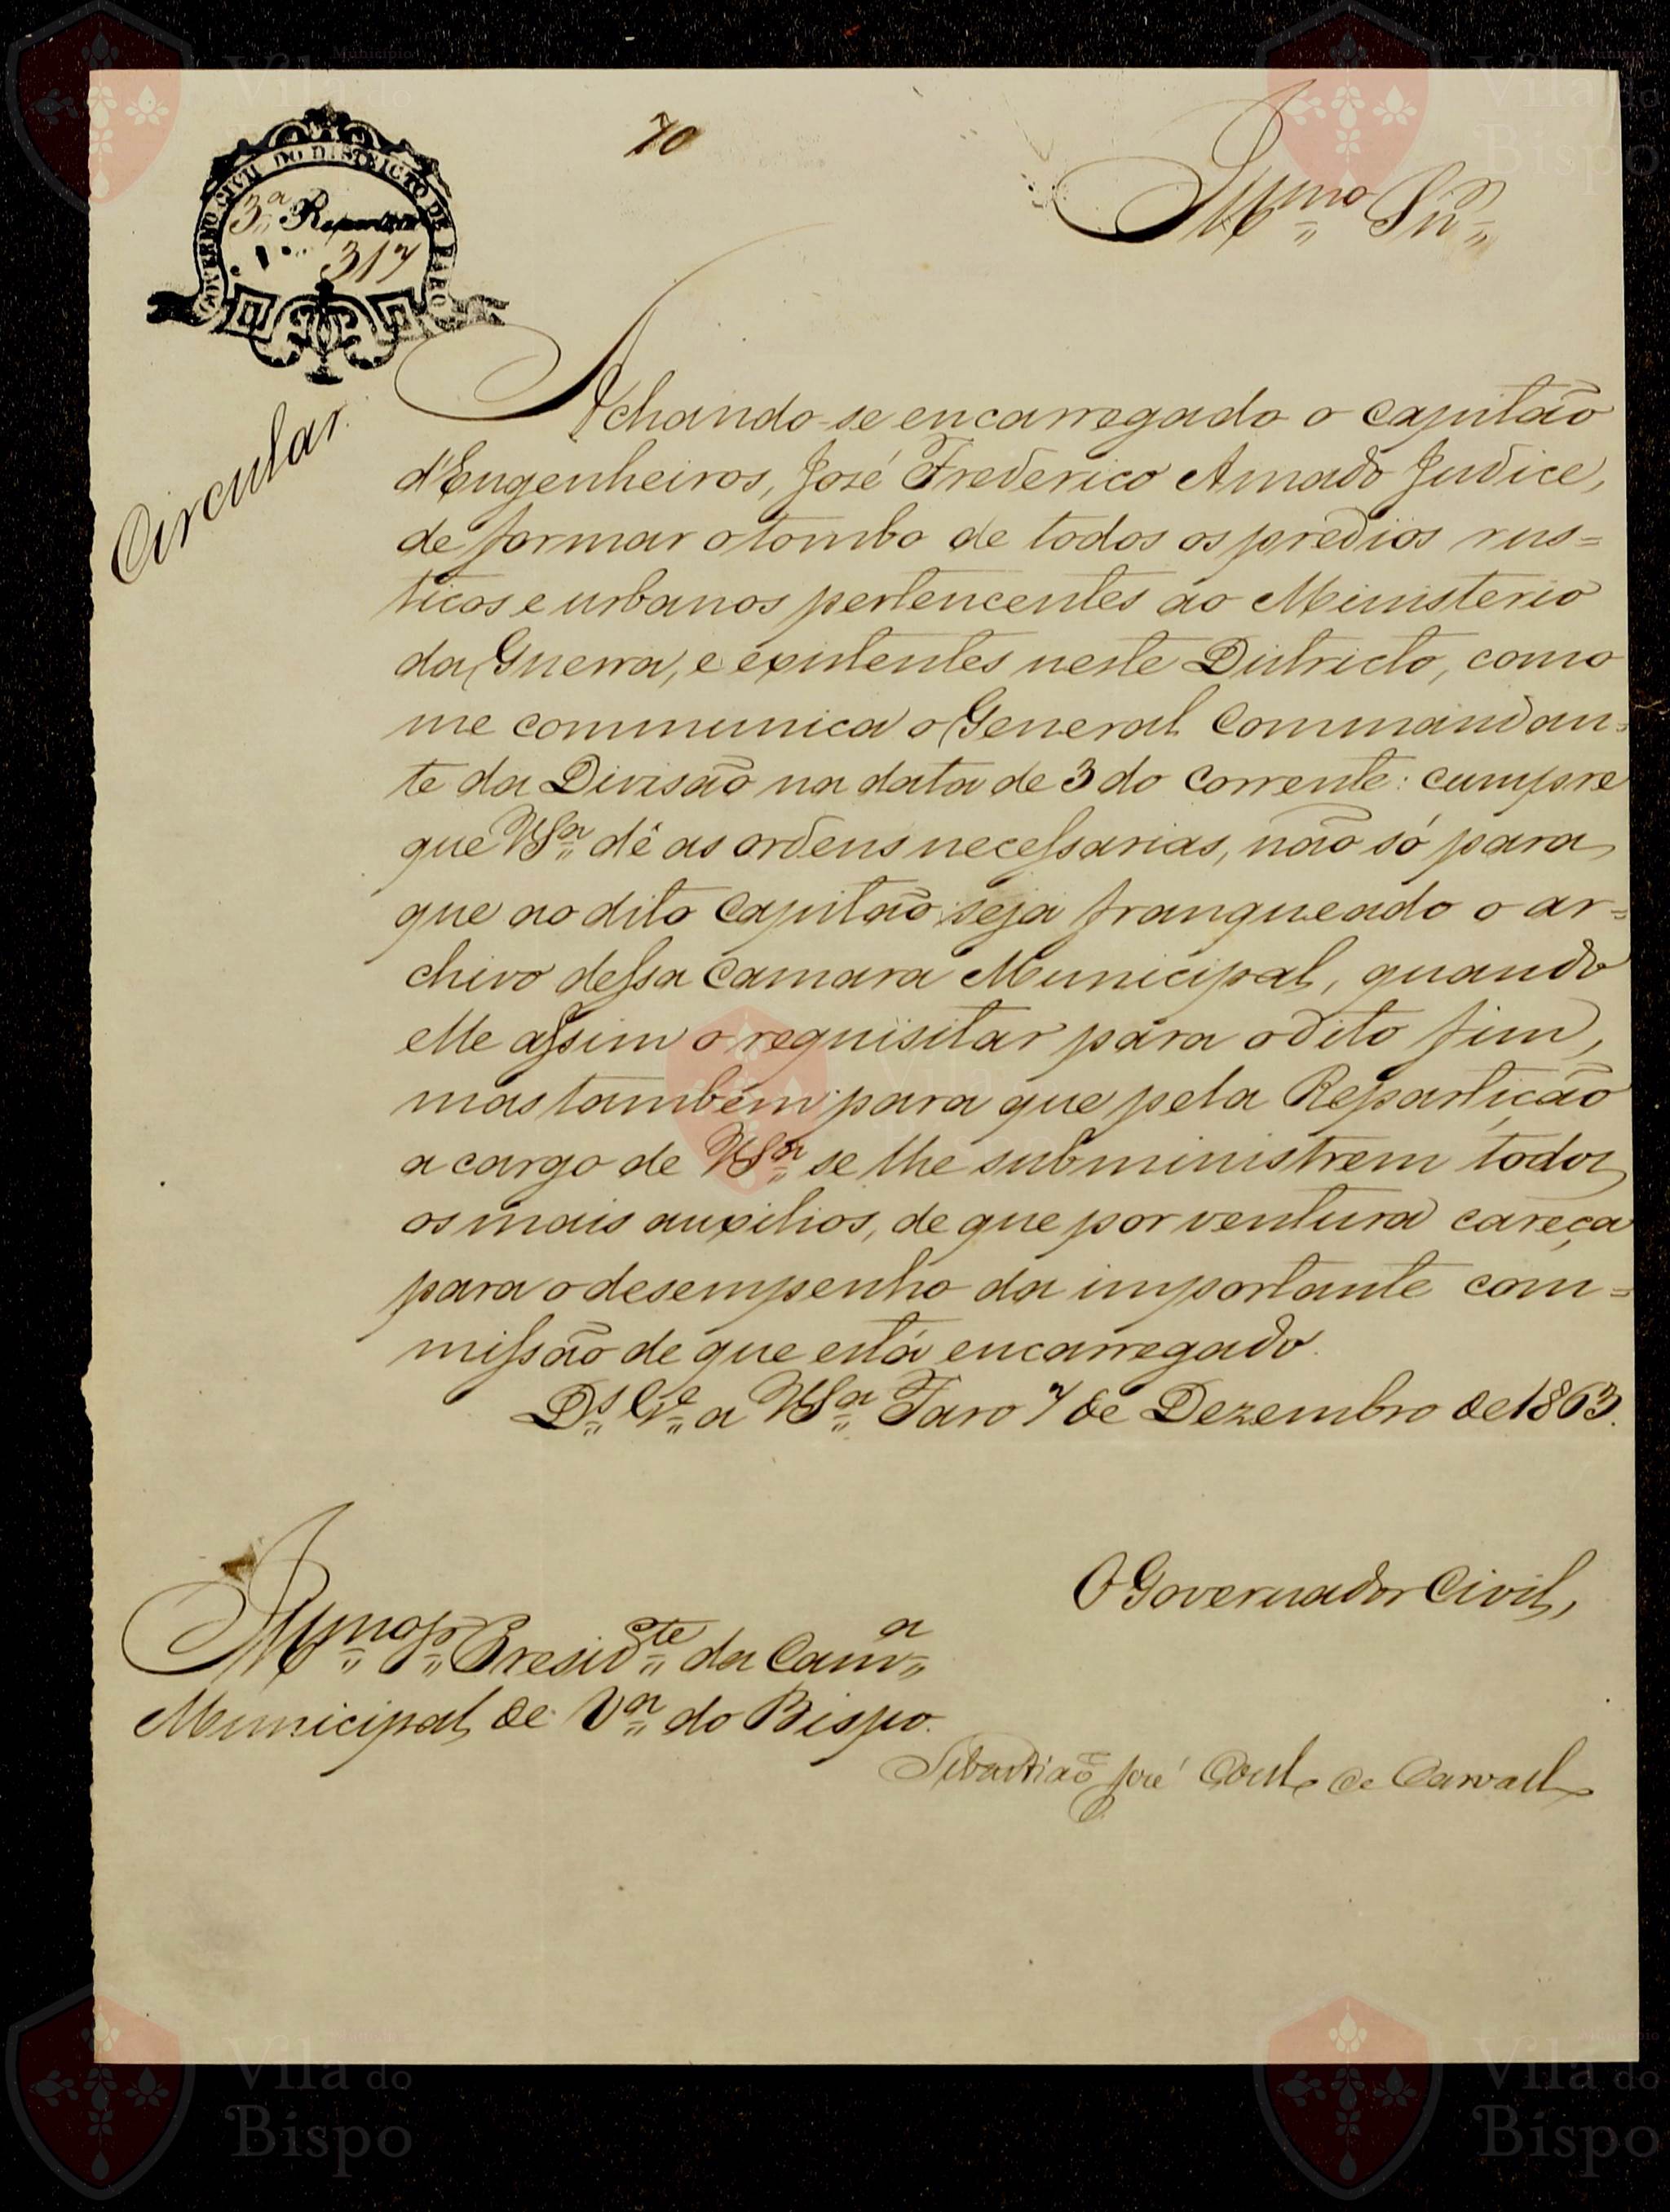 70
Illmo Snr
GOVERNO CIVIL DO DISTRICTO DE FARO
3.ª Repartição
N.º 317
Circular.
Achando-se encarregado o Capitão
d'Engenheiros, José Frederico Amado Judice,
de formar o tombo de todos os predios rus=
ticos e urbanos pertencentes ao Ministerio
da Guerra, e existentes neste Districto, como
me communica o General Commandan=
te da Divisão na data de 3 do corrente: cumpre
que VSª dê as ordens necessarias, não só para
que ao dito Capitão seja franqueado o ar=
chivo dessa Camara Municipal, quando
elle assim o requisitar para o dito fim,
mas tambem para que pela Repartição
a cargo de VSª se lhe subministrem todos
os mais auxilios, de que por ventura careça
para o desempenho da importante com=
missão de que está encarregado.
Ds Ge a VSª Faro 7 de Dezembro de 1863.
O Governador Civil,
Illmo Sr Presidte da Camª
Municipal de Vª do Bispo.
Sebastião José Coelho de Carvalho
Município
Vila do
Bispo